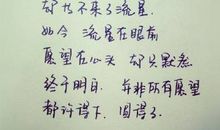 却也不来了流星
如今 流星在眼前
愿望在心头 却只默然
终于明白 并非所有愿望
都许得下.圆得了.